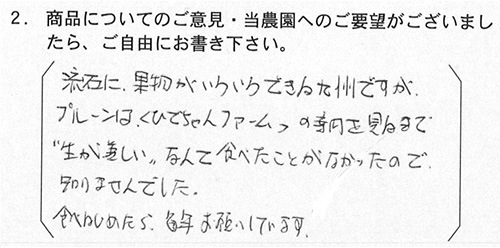 2．商品についてのご意見・当農園へのご要望がございまし
たら、ご自由にお書き下さい。
流石に、果物がいろいろできる九州ですが、
プルーンは、くひでちゃんファーム〉の を見るまで
"生が美しい〟なんて食べたことがなかったので、
知りませんでした。
食べはじめたら、毎年お願いしています。